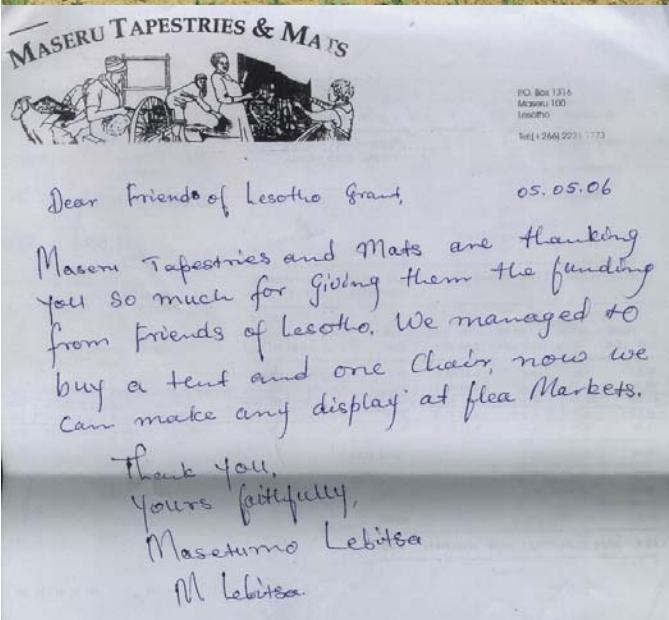 MASERU TAPESTRIES & MATS
P.O. Box 1316
Maseru 100
Lesotho
Dear Friends of Lesotho Grant,
05.05.06
Maseru Tapestries and Mats are thanking
you so much for Giving them the funding
from Friends of Lesotho. We managed to
buy a tent and one Chair, now we
Can make any display at flea Markets.
Thank you,
Yours faithfully,
Lebitsa
M Lebitsa.